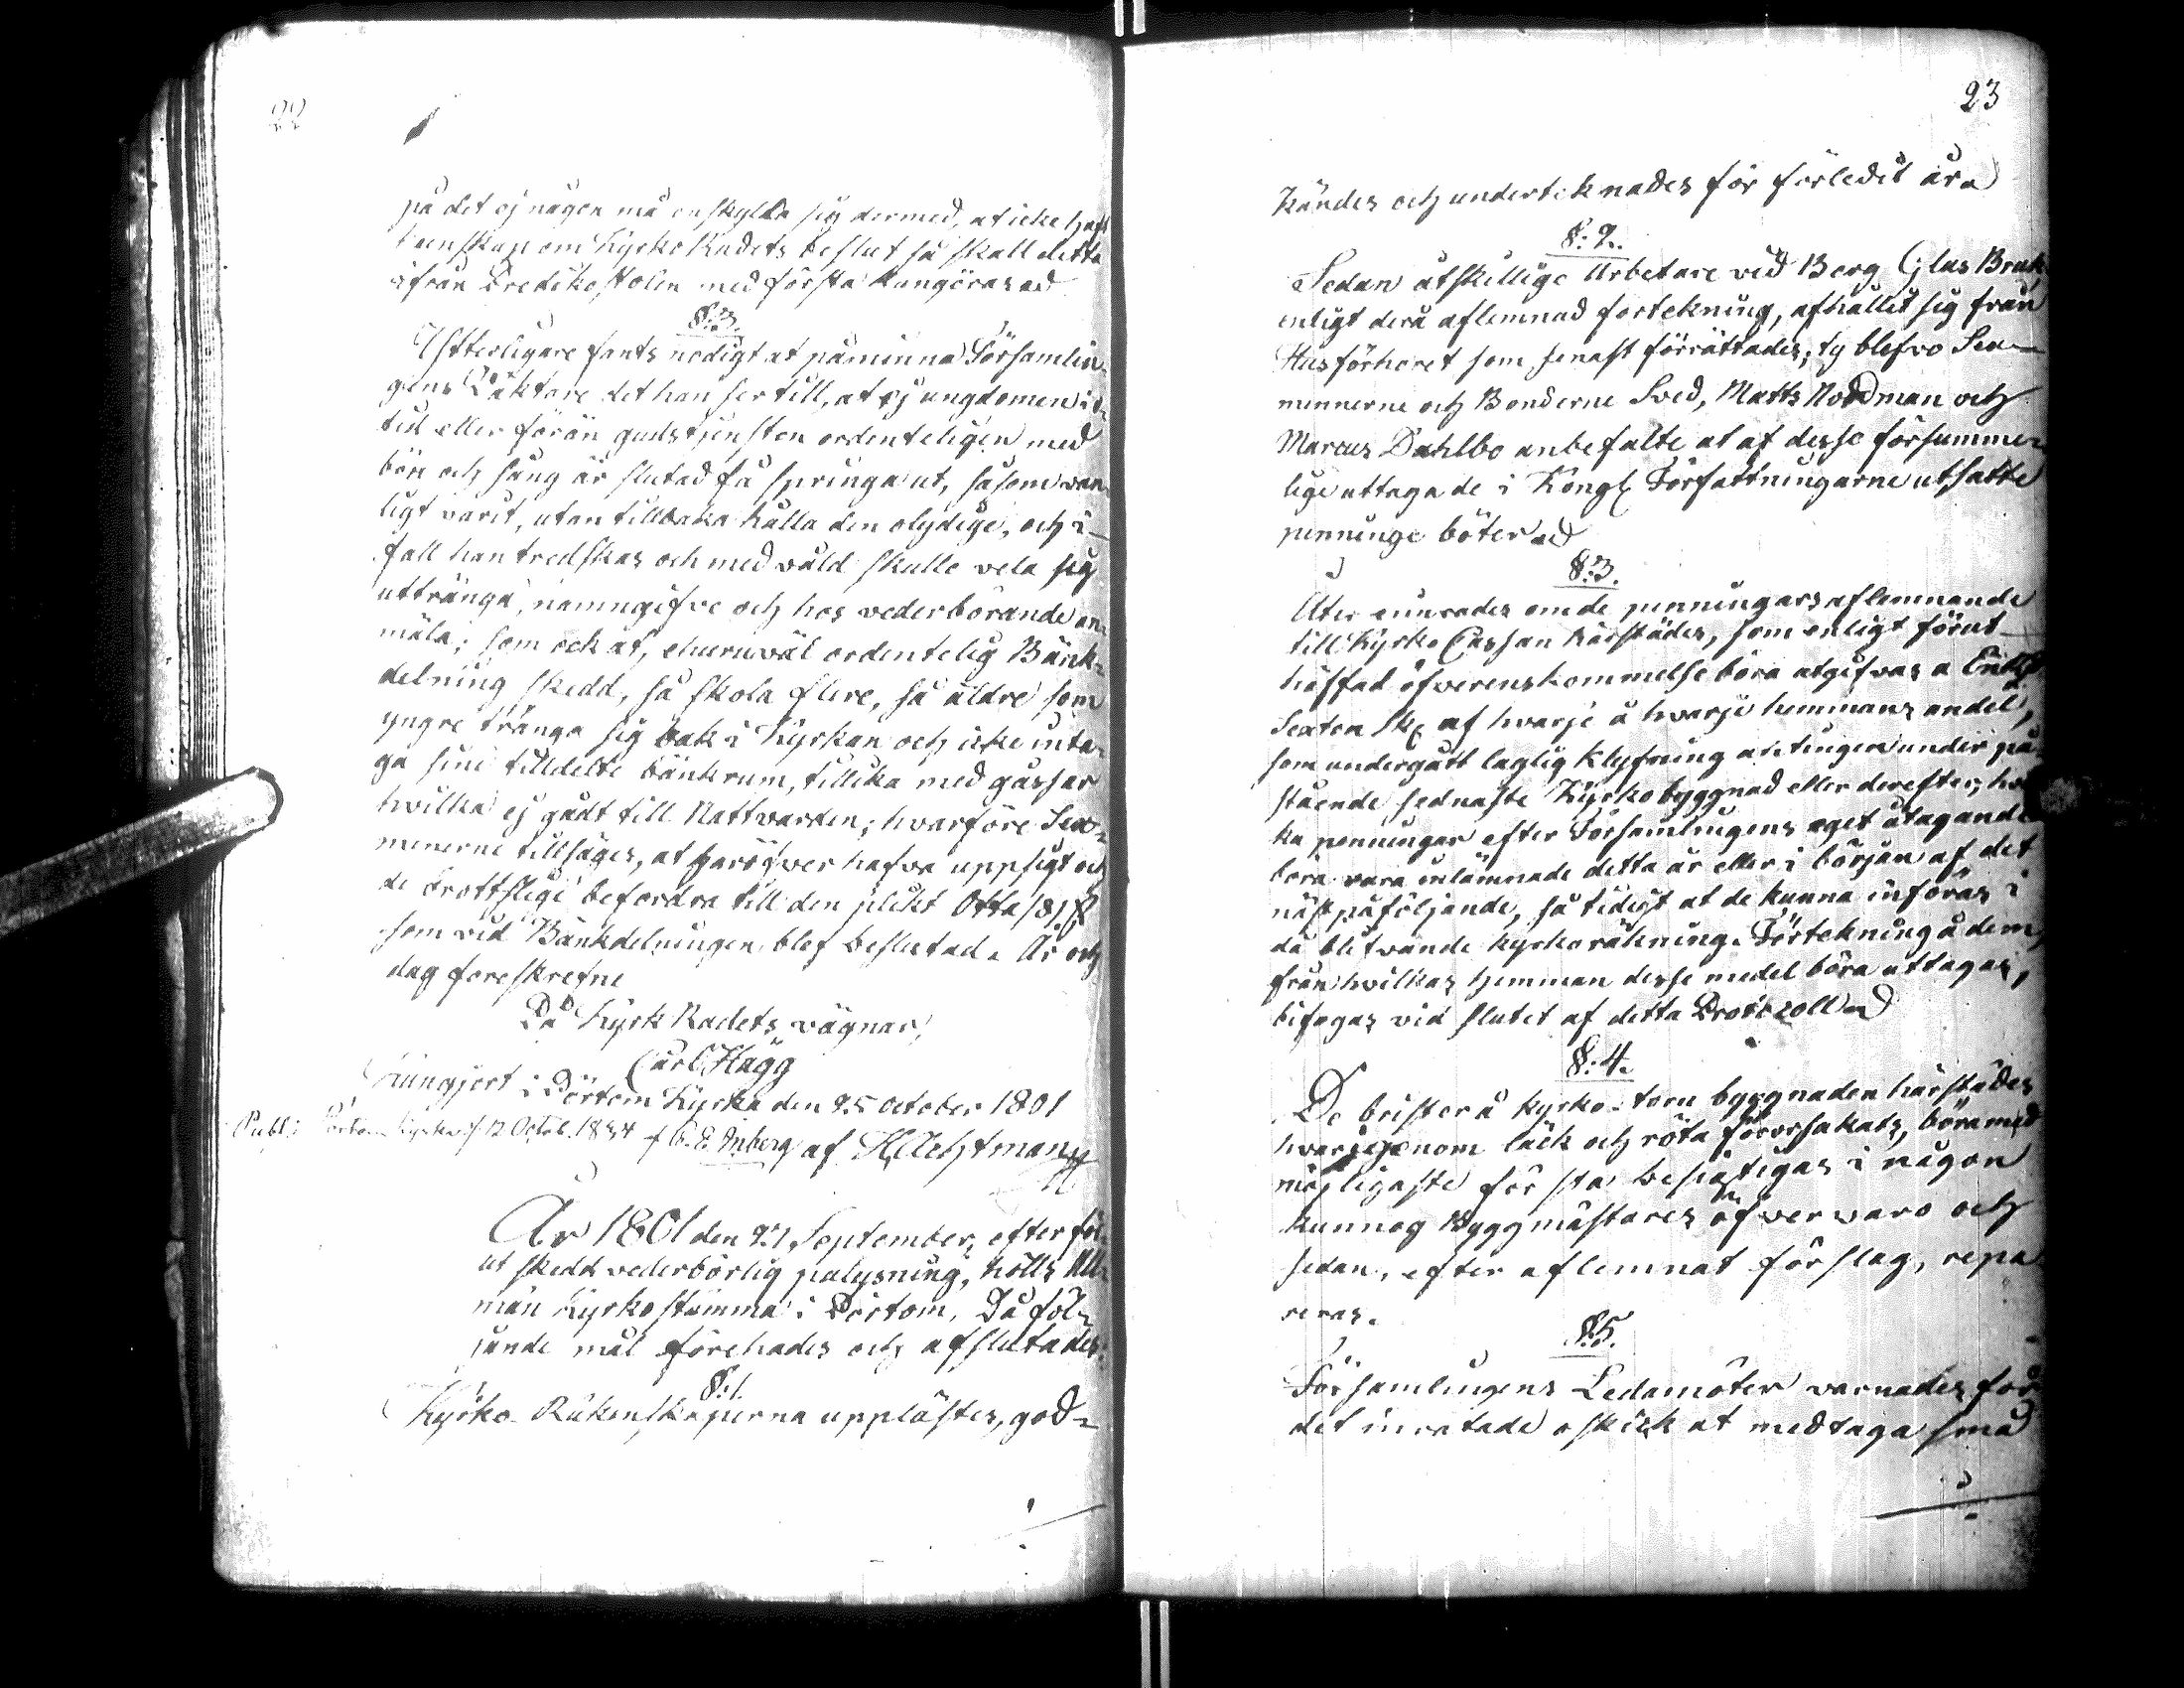 22
på det ej någon må enskylda sig dermed, at icke haft
kunskap om Kyrko Rådets beslut så skall detta
ifrån Predikostolen med första kungöras
§:3.
Ytterligare fants nodigt at påminna Församlin-
gens Väktare det han ser till, at ej ungdomen i o-
tid eller förän gudstjensten ordenteligen med
bön och sång är slutad få springa ut, såsom van-
ligt varit, utan tillbaka hålla den olydige, och i
fall han tredskas och med våld skulle vela sig
uttränga, namngifve och hos vederbörande an-
mäla; som ock at, ehuruväl ordentelig Bänk-
delning skedd, så skola flere, så äldre som
yngre tränga sig bak i Kyrkan och icke inta-
ga sine tilldelte bänkrum, tillika med gåssar
hvilka ej gådt till Nattvarden; hvarföre Sex-
mennerne tillsäges, at häröfver hafva uppsigt och
de brottslige befordra till den plikt Otta /8/ ß
som vid Bänkdelningen blef beslutad. År och
dag foreskrefne
På Kyrk Radets vägnar,
Carl Hägg
Kungjort i Pörtom Kyrka den 25 October 1801
Publ: Pörtom Kyrka d. 12 Octob. 1834 af af H. Aejmanz
År 1801 den 27 September, efter för-
ut skedd vederbörlig pålysning, hölls All-
män Kyrkostämma i Pörtom, Då föl-
jande mål förehades och afslutades:
§:1.
Kyrko-Räkenskaperna upplästes, god-
23
kändes och underteknades för förledit år.
§:2.
Sedan åtskillige Arbetare vid Berg Glas Bruk
enligt derå aflemnad fortekning, afhållit sig från
Husförhoret som senast förrättades, ty blefvo Sex-
mennerne och Bonderne Sved, Matts Nordman och
Marcus Dahlbo anbefalte at af desse försumme-
lige uttaga de i Kongl Författningarne utsatte
penninge böter
§:3.
Åter einrades om de penningars aflemnande
till Kyrko Cassan härstädes, som enligt förut
träffad öfverenskommelse böra utgifvas a
Sexton sk af hvarje å hvarje hemmans andel,
som undergått laglig klyfning antingen under på-
stående sednaste Kyrkobyggnad eller derefter, hvil
ka penningar efter Församlingens eget åtagande
böra vara inlämnade detta år eller i början af det
näst påföljande, så tidigt at de kunna införas i
då blifvande kyrkoräkning. Förtekning å dem,
från hvilkas hemman desse medel böra uttagas,
bifogas vid slutet af detta Protocoll
§:4.
De brister å kyrko-torn byggnaden härstädes
hvarigenom läck och röta förorsakats, böra med
möjligaste första besigtigas i någon
kunnog Byggmästares öfvervaro och
sedan, efter aflemnat förslag, repa
reras.
§:5.
Församlingens Ledamöter varnades för
det inrotade oskick at medtaga små